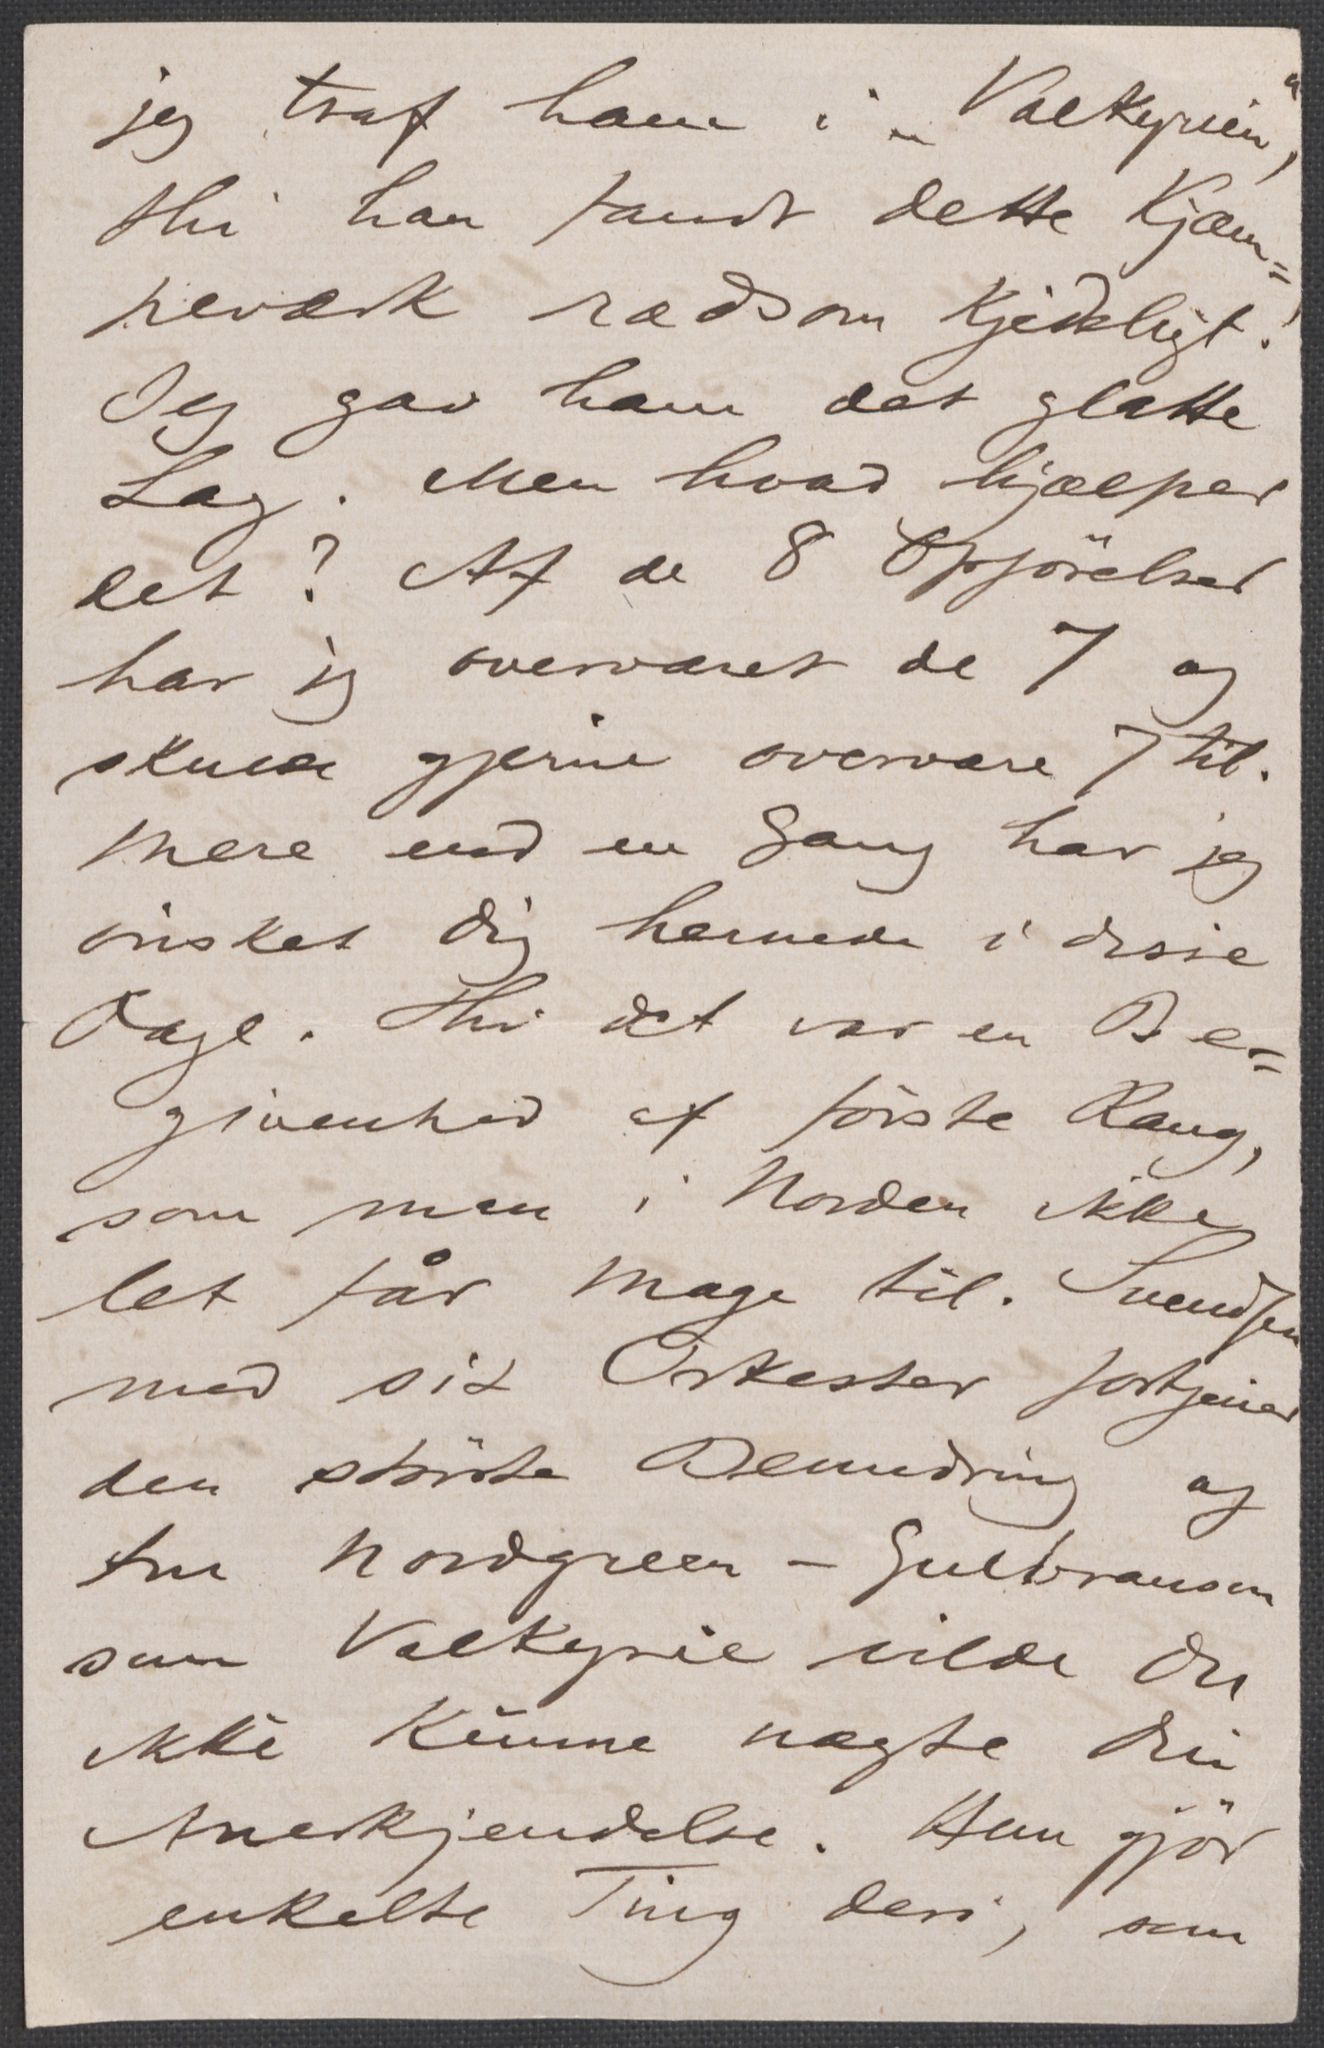 jeg traf ham i „Valkyrien“,
thi han fandt dette Kjæm=
peværk rædsom kjedeligt!
Jeg gav ham det glatte
Lag. Men hvad hjælper
det? Af de 8 Opförelser
har jeg overværet de 7 og
skulde gjerne overvære 7 til.
Mere end en Gang har jeg
önsket Dig hernede i disse
Dage. Thi det var en Be=
givenhed af förste Rang,
som man i Norden ikke
let får Mage til. Svendsen
med sit Orkester fortjener
den störste Beundring og
Fru Nordgreen-Gulbranson
som Valkyrie vilde Du
ikke kunne nægte Din
Anerkjendelse. Hun gjör
enkelte Ting deri, som